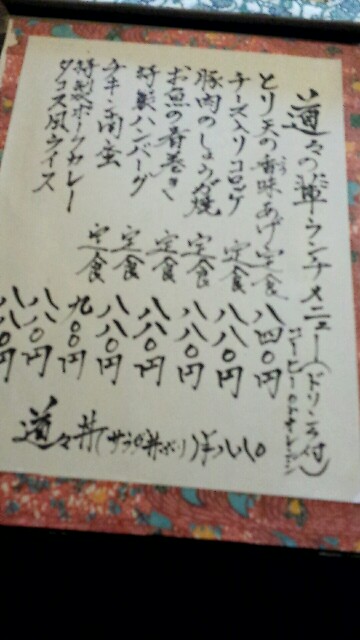 道々の華・ランチメニュー(ドリンク付)
とり天の香味あげ定食 八四〇円
チーズ入りコロッケ 定食 八八〇円
豚肉のしょうが焼 定食 八八〇円
お魚の春巻き 定食 八八〇円
特製ハンバーグ 定食 八八〇円
チキン南蛮 定食 九〇〇円
特製ポークカレー 八八〇円
タコス風ライス 八八〇円
道々丼(サラダ丼